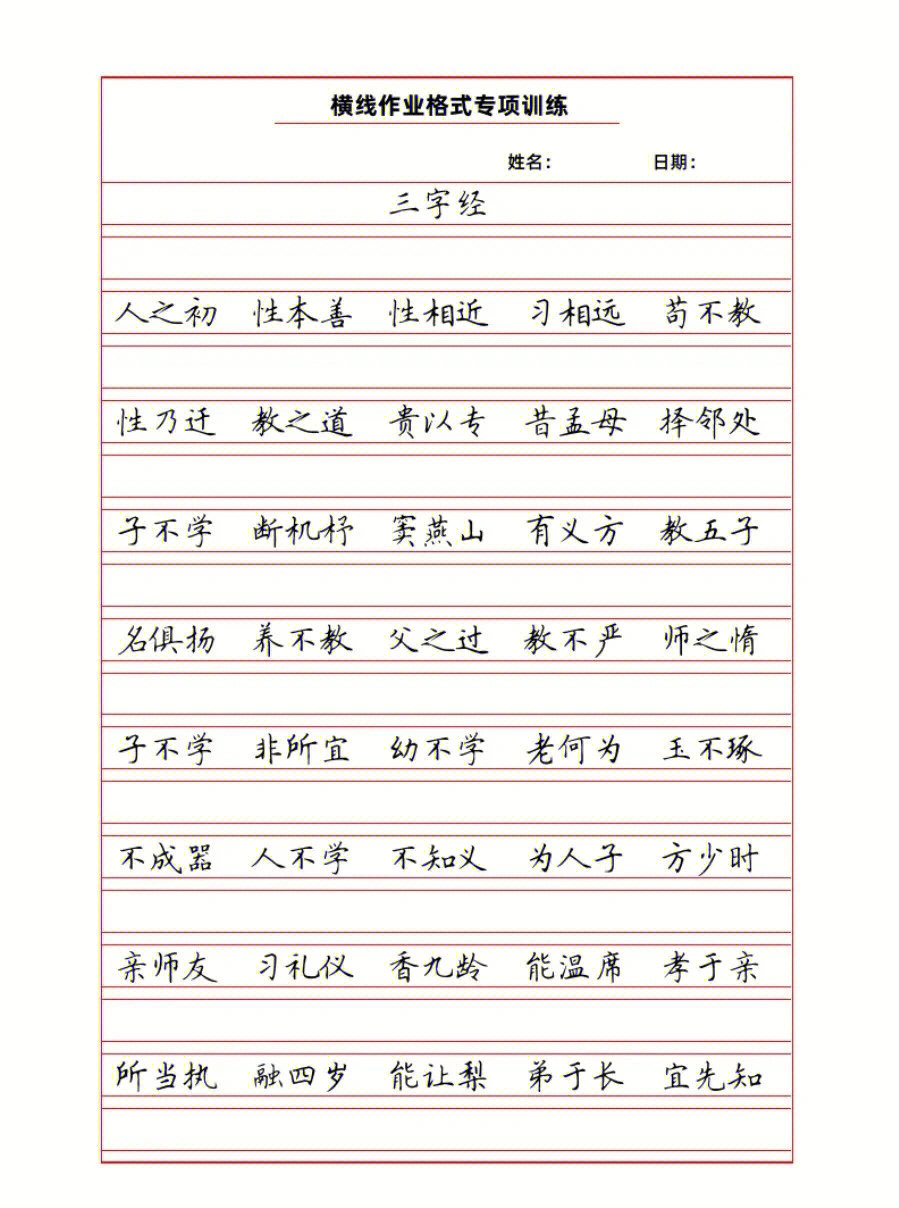 横线作业格式专项训练
姓名： 日期：
三字经
人之初 性本善 性相近 习相远 苟不教
性乃迁 教之道 贵以专 昔孟母 择邻处
子不学 断机杼 窦燕山 有义方 教五子
名俱扬 养不教 父之过 教不严 师之惰
子不学 非所宜 幼不学 老何为 玉不琢
不成器 人不学 不知义 为人子 方少时
亲师友 习礼仪 香九龄 能温席 孝于亲
所当执 融四岁 能让梨 弟于长 宜先知